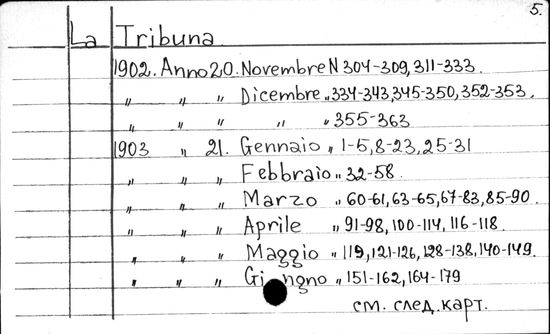 5.
La Tribuna
1902. Anno 20. Novembre N 304-309, 311-333.
" " " Dicembre " 334-343, 345-350, 352-353,
" " " " " 355-363
1903 " 21. Gennaio " 1-5, 8-23, 25-31
" " " Febbraio " 32-58.
" " " Marzo " 60-61, 63-65, 67-83, 85-90.
" " " Aprile " 91-98, 100-114, 116-118.
" " " Maggio " 119, 121-126, 128-138, 140-149.
" " " " 151-162, 164-179
см. след. карт.